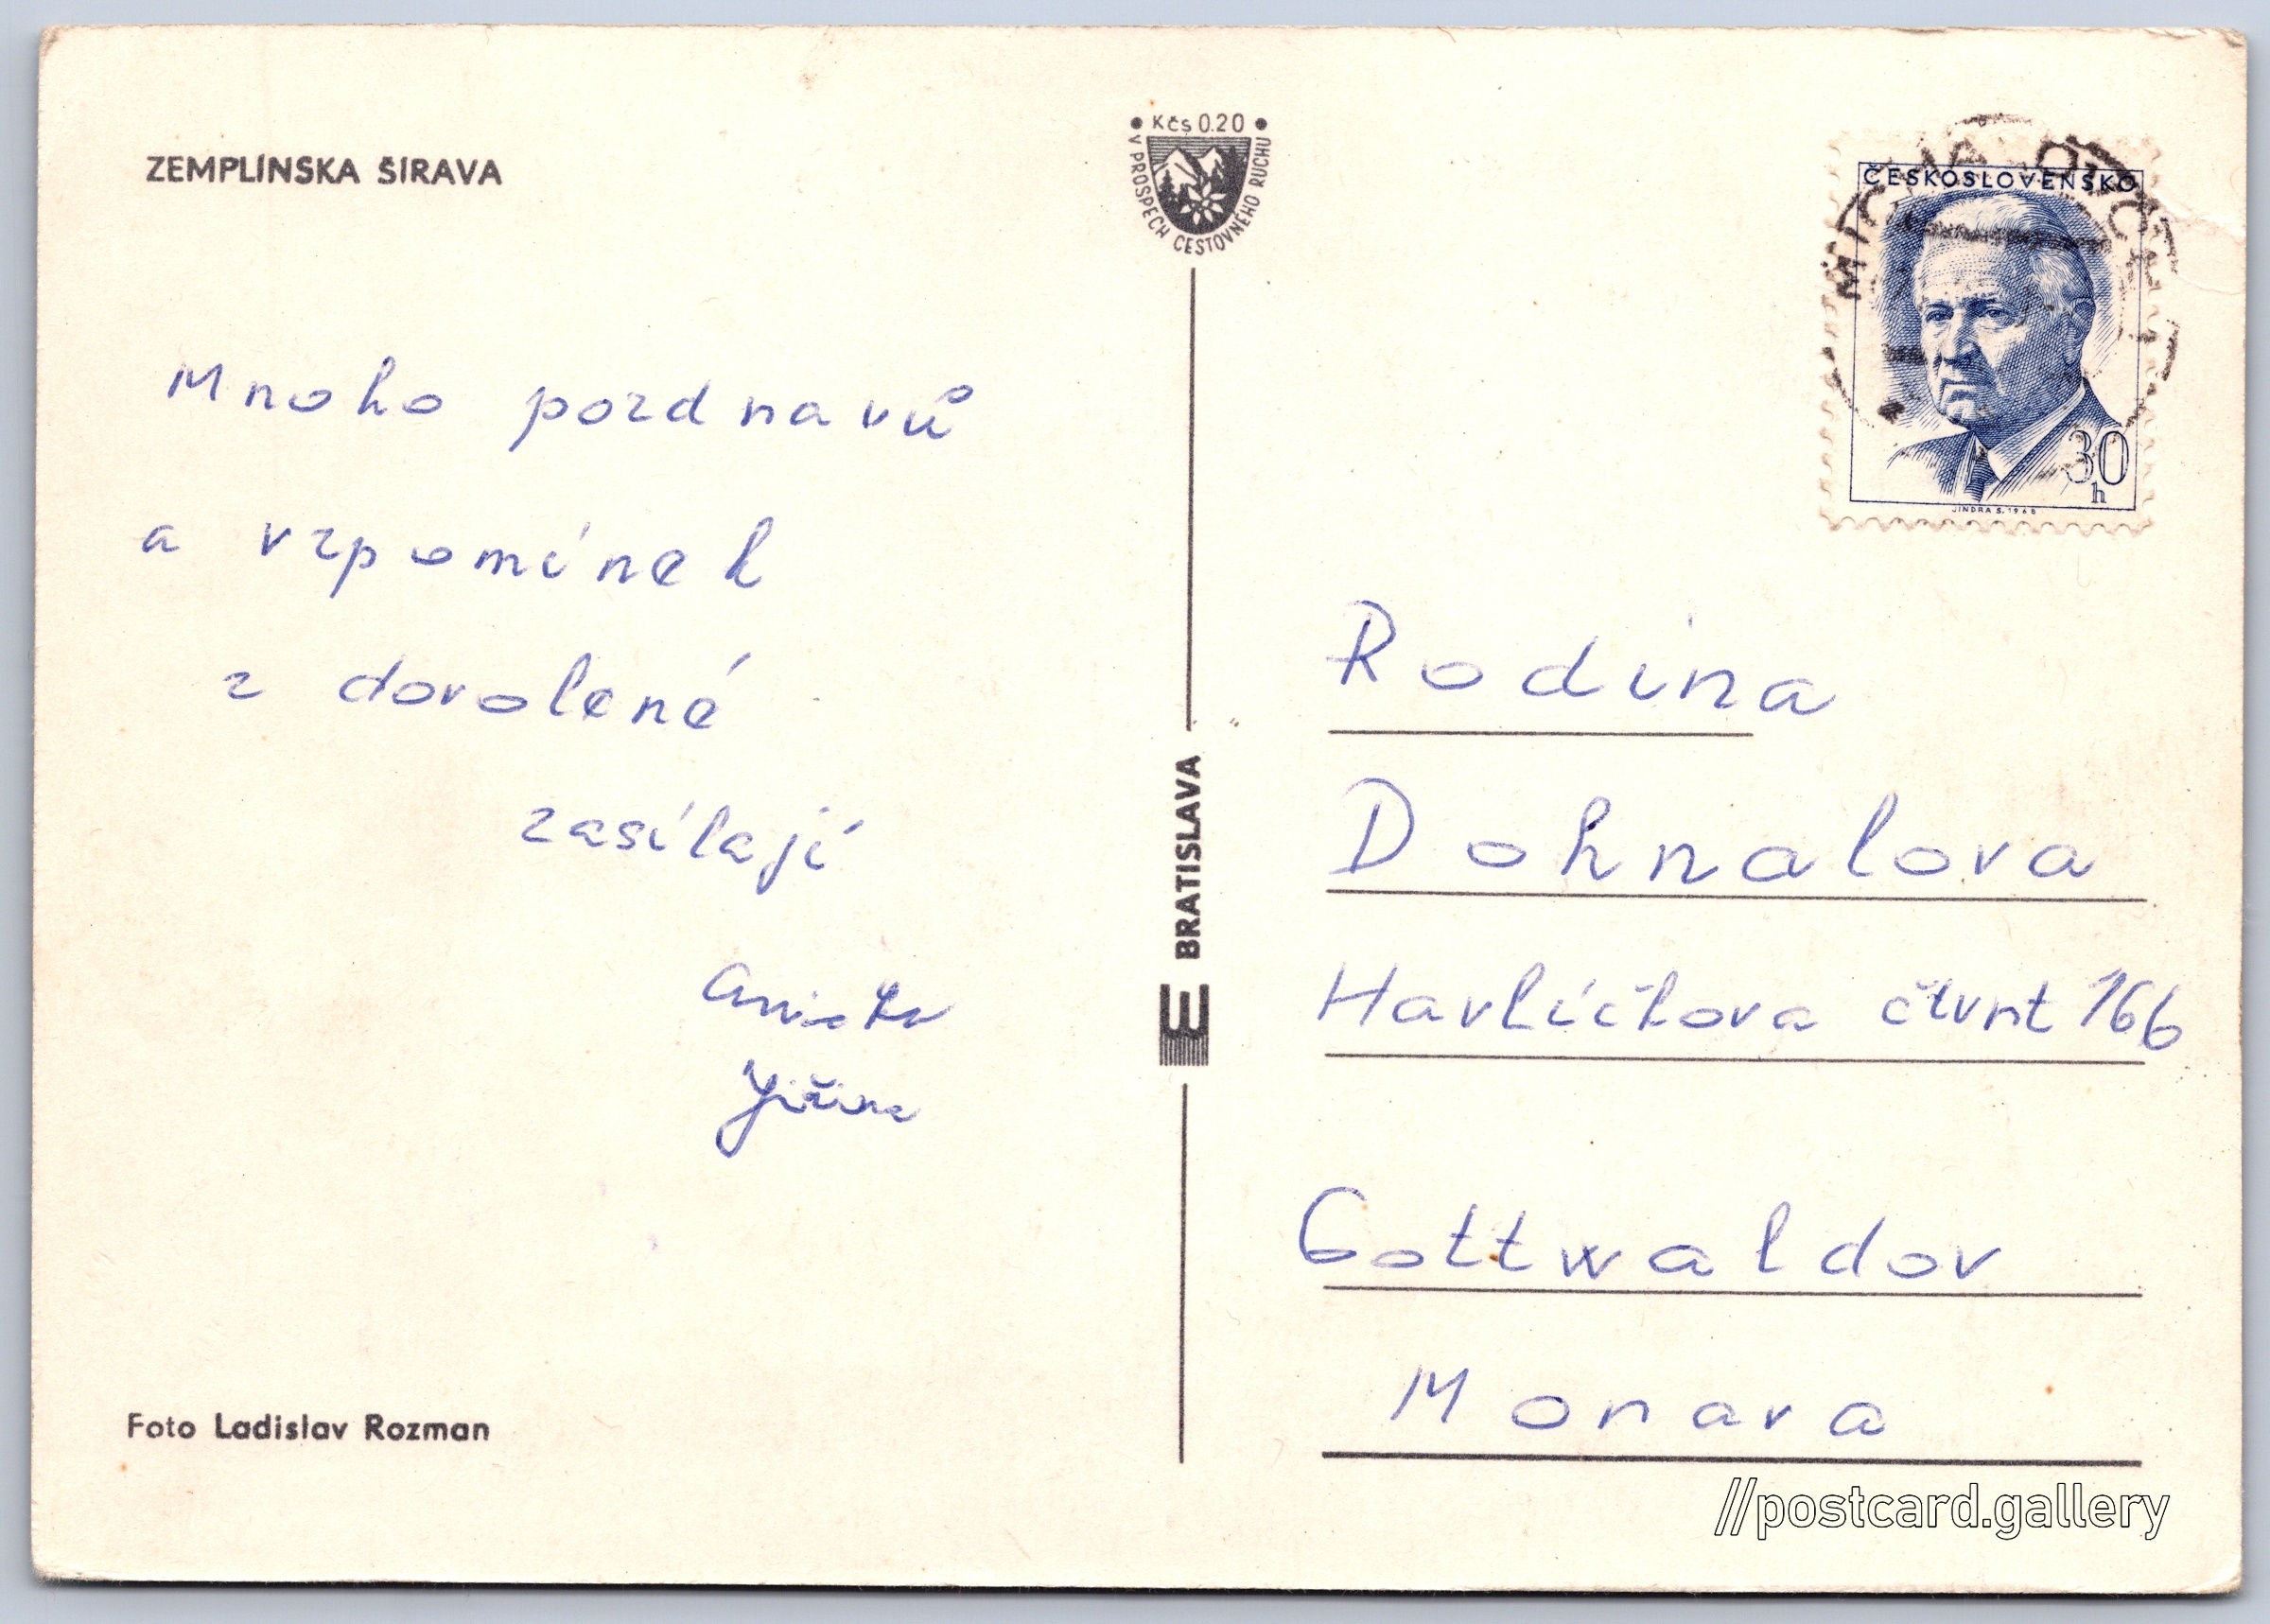 ZEMPLÍNSKA ŠÍRAVA
Mnoho pozdnavů
a vzpomínek
z dovolené
zasílají
Jiřina
Foto Ladislav Rozman
• Kčs 0.20 •
V PROSPECH CESTOVNÉHO RUCHU
BRATISLAVA
ČESKOSLOVENSKO
30
h
JINDRA S. 1968
Rodina
Dohnalova
Havlíčkova čtvrt 166
Gottwaldov
Monava
//postcard.gallery